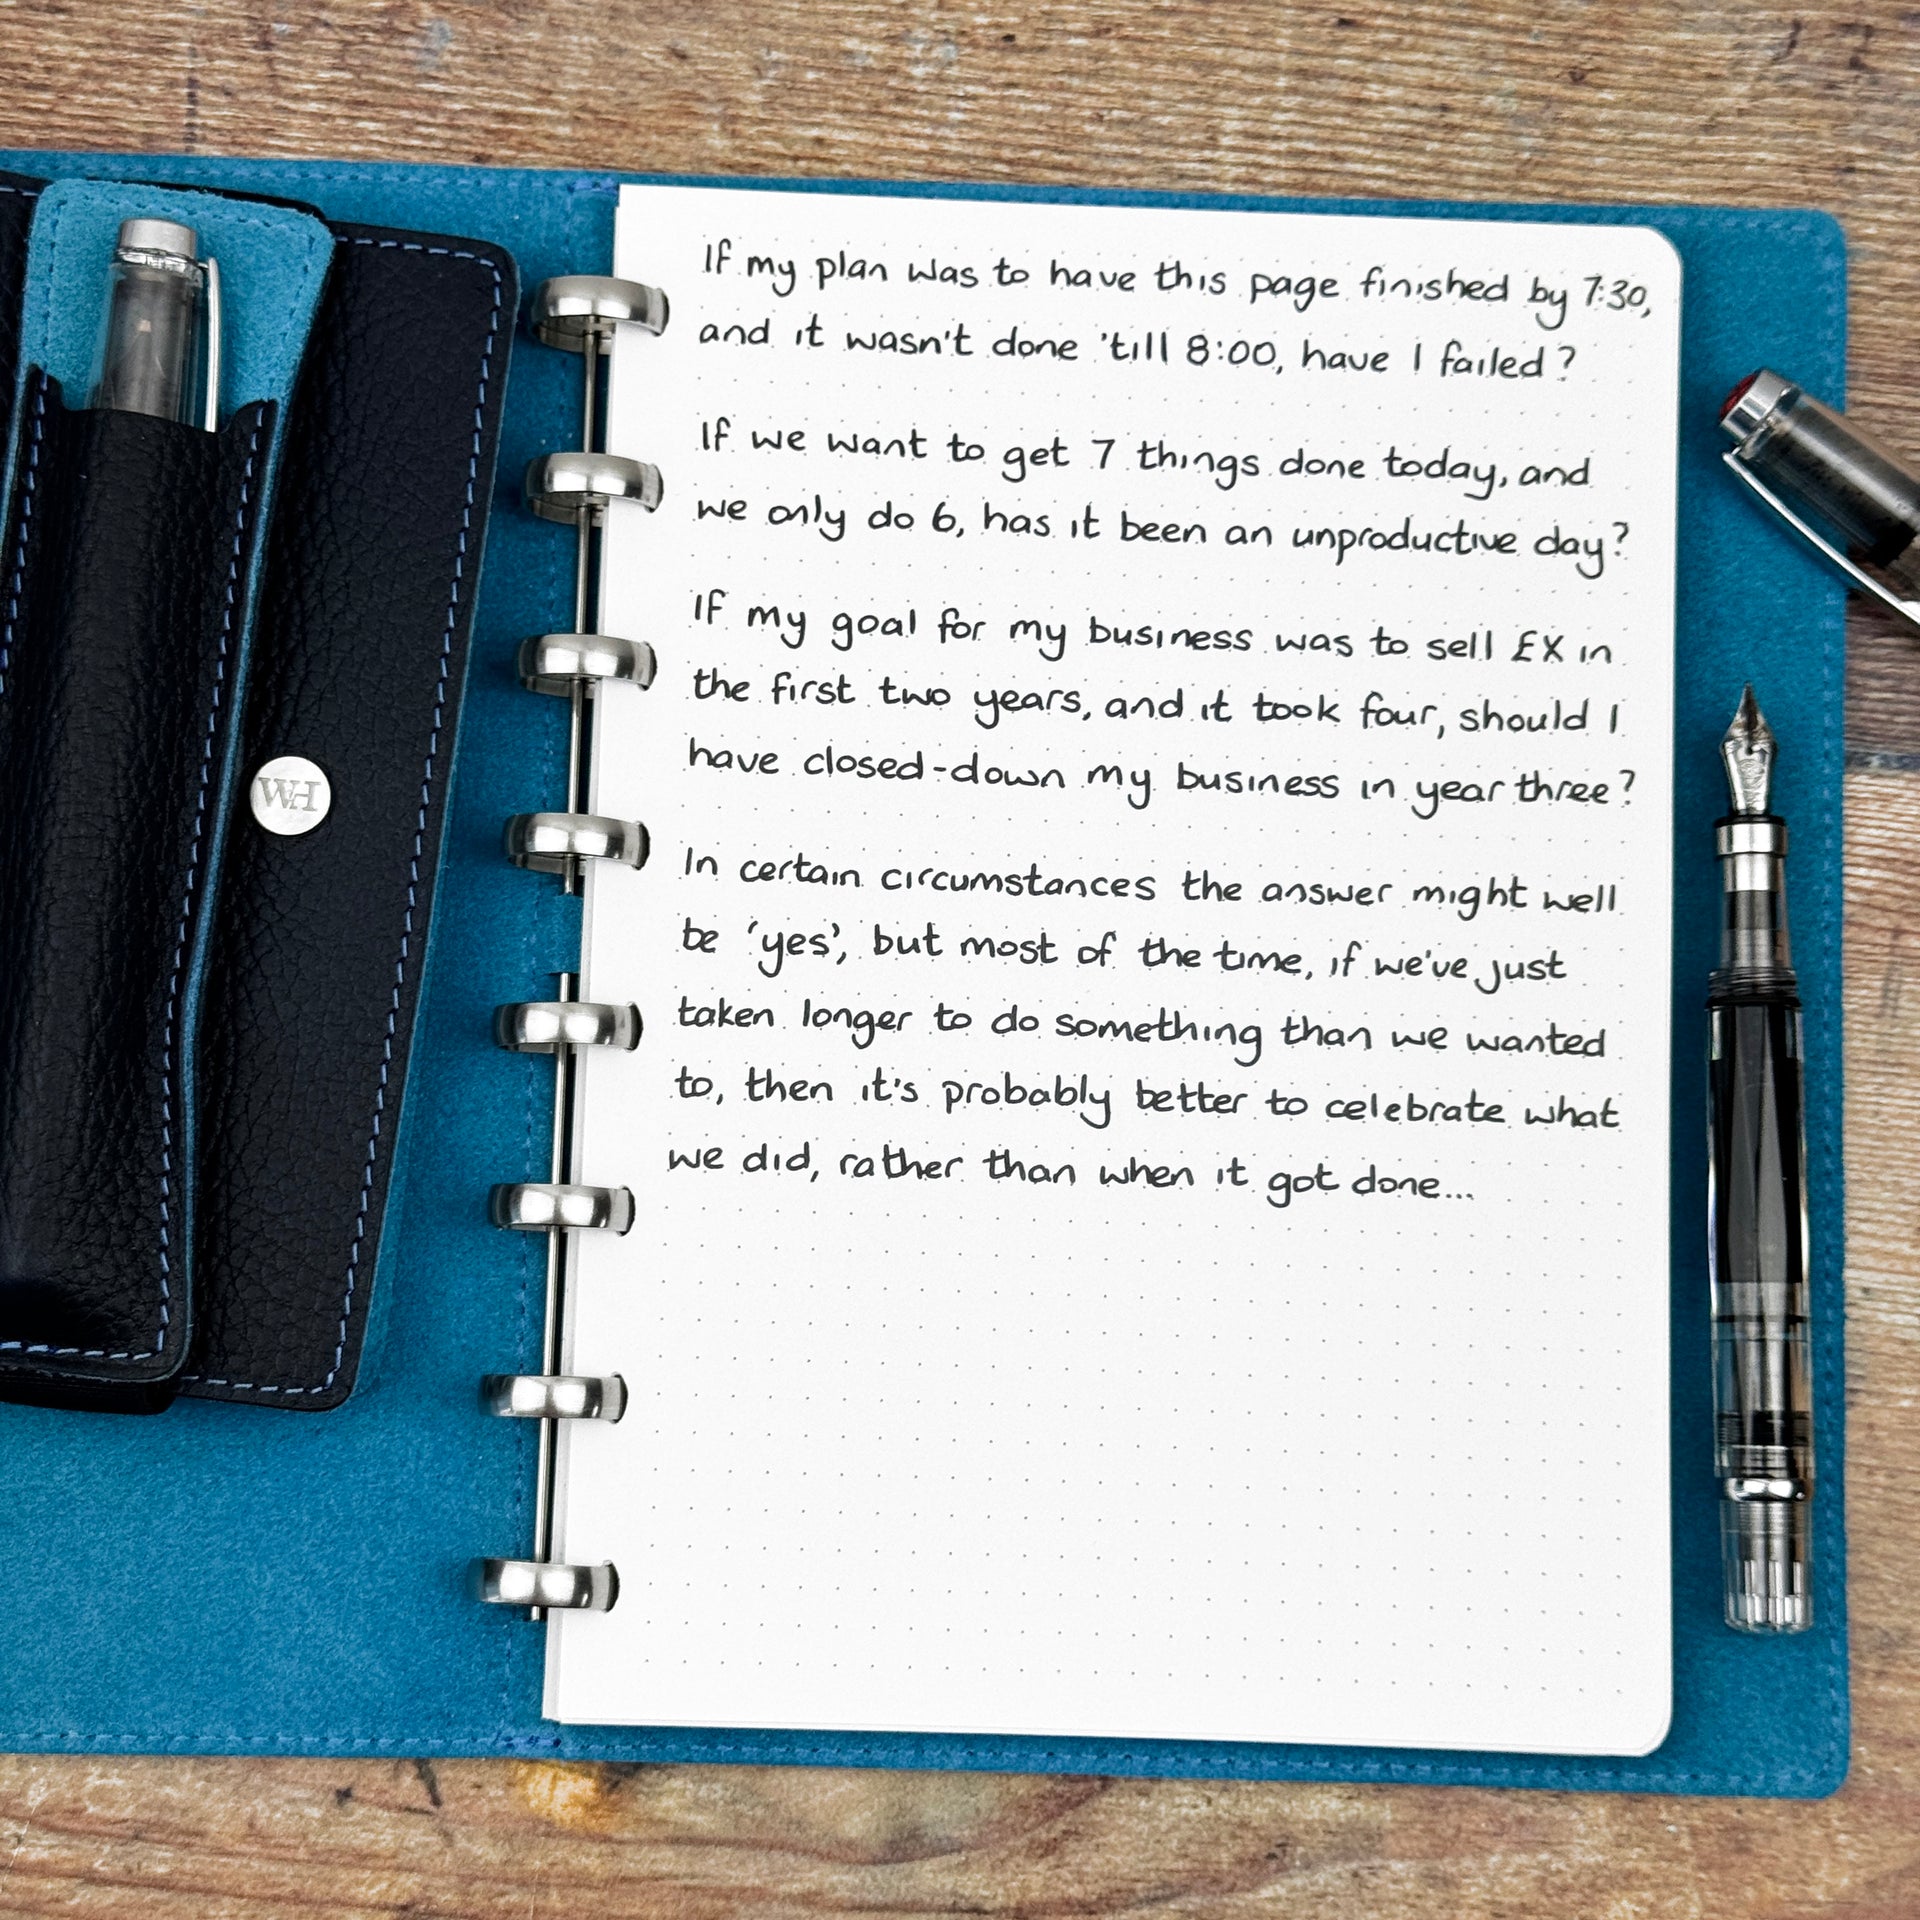 If my plan was to have this page finished by 7:30,
and it wasn't done 'till 8:00, have I failed?
If we want to get 7 things done today, and
we only do 6, has it been an unproductive day?
If my goal for my business was to sell £X in
the first two years, and it took four, should I
have closed-down my business in year three?
In certain circumstances the answer might well
be 'yes', but most of the time, if we've just
taken longer to do something than we wanted
to, then it's probably better to celebrate what
we did, rather than when it got done...
WH